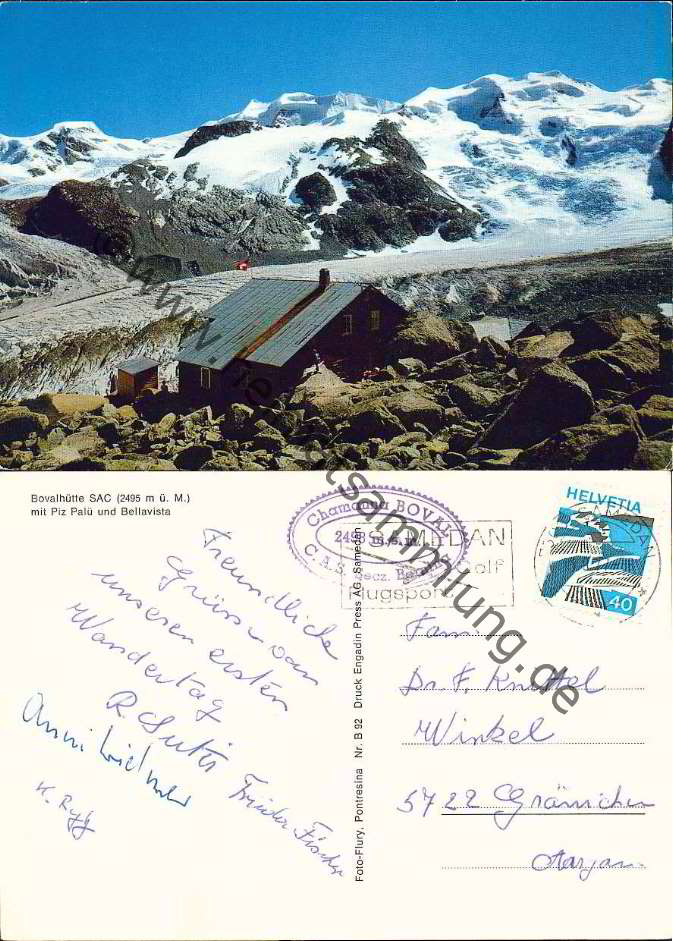 www.heimatsammlung.de
Bovalhütte SAC (2495 m ü. M.)
mit Piz Palü und Bellavista
Freundliche
Grüsse von
unserem ersten
Wandertag
R. Suter
Frieda Fischer
K. Ryff
Foto-Flury, Pontresina Nr. B 92 Druck Engadin Press AG, Samedan
Chamanna BOVAL
2495 m.s.m.
C.A.S.
SAMEDAN
Golf
Flugsport
HELVETIA
SAMEDAN
40
Fam.
Dr. F. Knittel
Winkel
5722 Gränichen
Aargau